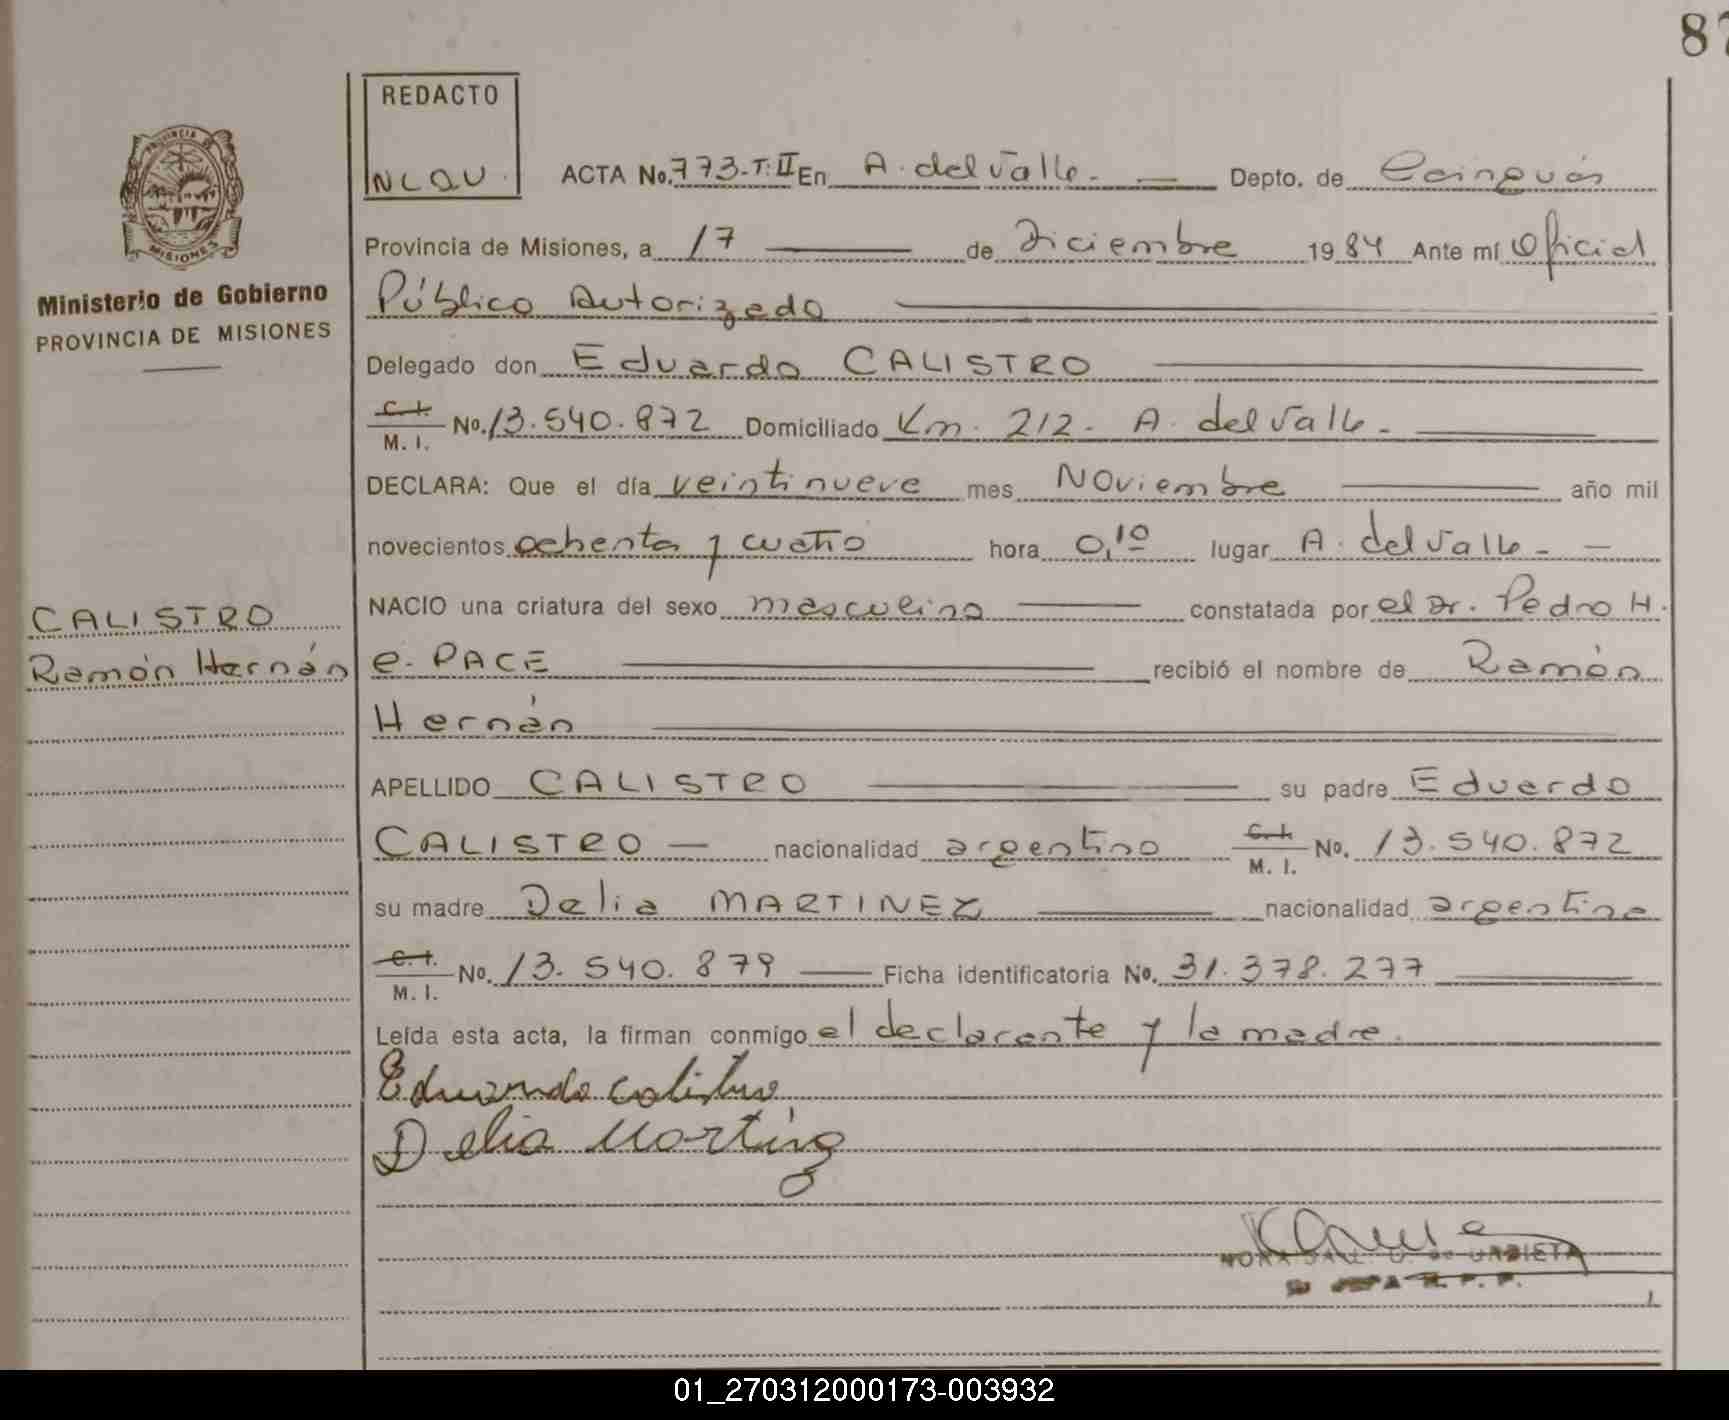 87
REDACTO
NLQU.
PROVINCIA DE
MISIONES
Ministerio de Gobierno
PROVINCIA DE MISIONES
ACTA No. 773-T.II En A. del Valle. - Depto. de Cainguás
Provincia de Misiones, a 17 de Diciembre 1984 Ante mí Oficial
Público Autorizado
Delegado don Eduardo CALISTRO
C. I. M. I. No. 13.540.872 Domiciliado Km. 212. A. del Valle.
DECLARA: Que el día veintinueve mes Noviembre año mil
novecientos ochenta y cuatro hora 0,10 lugar A. del Valle. -
NACIO una criatura del sexo masculino constatada por el Dr. Pedro H.
e. PACE recibió el nombre de Ramón
Hernán
CALISTRO
Ramón Hernán
APELLIDO CALISTRO su padre Eduardo
CALISTRO - nacionalidad argentino C. I. M. I. No. 13.540.872
su madre Delia MARTINEZ nacionalidad argentina
C. I. M. I. No. 13.540.879 Ficha identificatoria No. 31.378.277
Leída esta acta, la firman conmigo el declarante y la madre.
Eduardo Calistro
Delia Martinez
NORA de URBIETA
R. P. P.
01_270312000173-003932